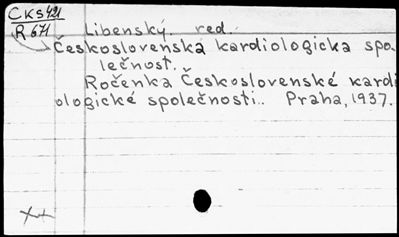 CKS421
R 671
Libenský. red.
Československa kardiologicka spo-
lečnost.
Ročenka Československé kardi
ologické společnosti.. Praha, 1937.